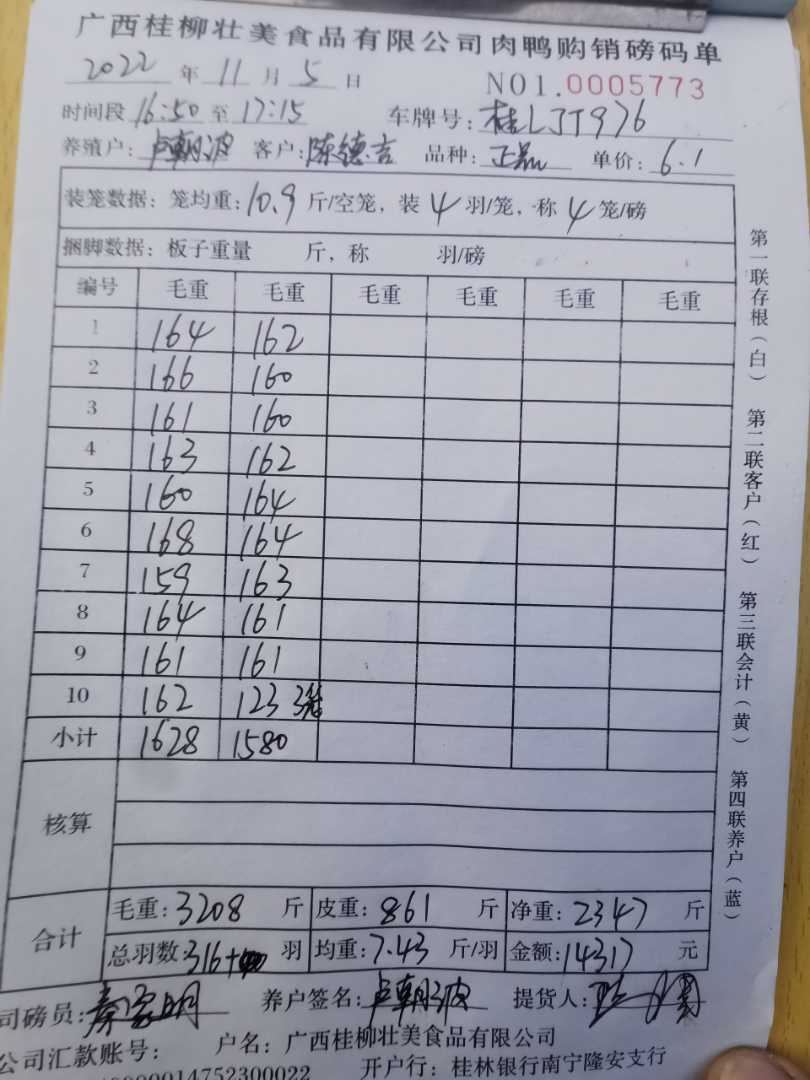 广西桂柳壮美食品有限公司肉鸭购销磅码单
2022 年 11 月 5 日 NO1.0005773
时间段 16:50 至 17:15 车牌号: 桂LJT976
养殖户: 卢朝波 客户: 陈德吉 品种: 正品 单价: 6.1
装笼数据: 笼均重: 10.9 斤/空笼, 装 4 羽/笼, 称 4 笼/磅
捆脚数据: 板子重量 斤, 称 羽/磅
编号 毛重 毛重 毛重 毛重 毛重 毛重
1 164 162
2 166 160
3 161 160
4 163 162
5 160 164
6 168 164
7 159 163
8 164 161
9 161 161
10 162 123 3笼
小计 1628 1580
核算
合计
毛重: 3208 斤 皮重: 861 斤 净重: 2347 斤
总羽数: 316+ 羽 均重: 7.43 斤/羽 金额: 14317 元
司磅员: 秦家明 养户签名: 卢朝波 提货人:
公司汇款账号: 户名: 广西桂柳壮美食品有限公司
00014752300022 开户行: 桂林银行南宁隆安支行
第一联存根(白) 第二联客户(红) 第三联会计(黄) 第四联养户(蓝)